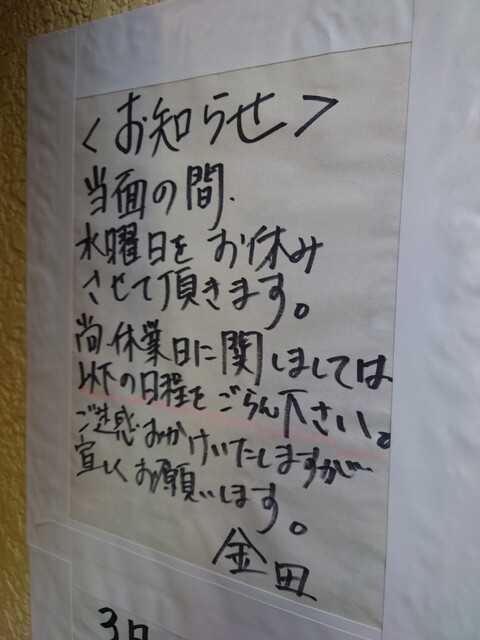 ＜お知らせ＞
当面の間、
水曜日をお休み
させて頂きます。
尚、休業日に関しましては
以下の日程をごらん下さい。
ご迷惑おかけいたしますが…
宜しくお願いします。
金田
3日